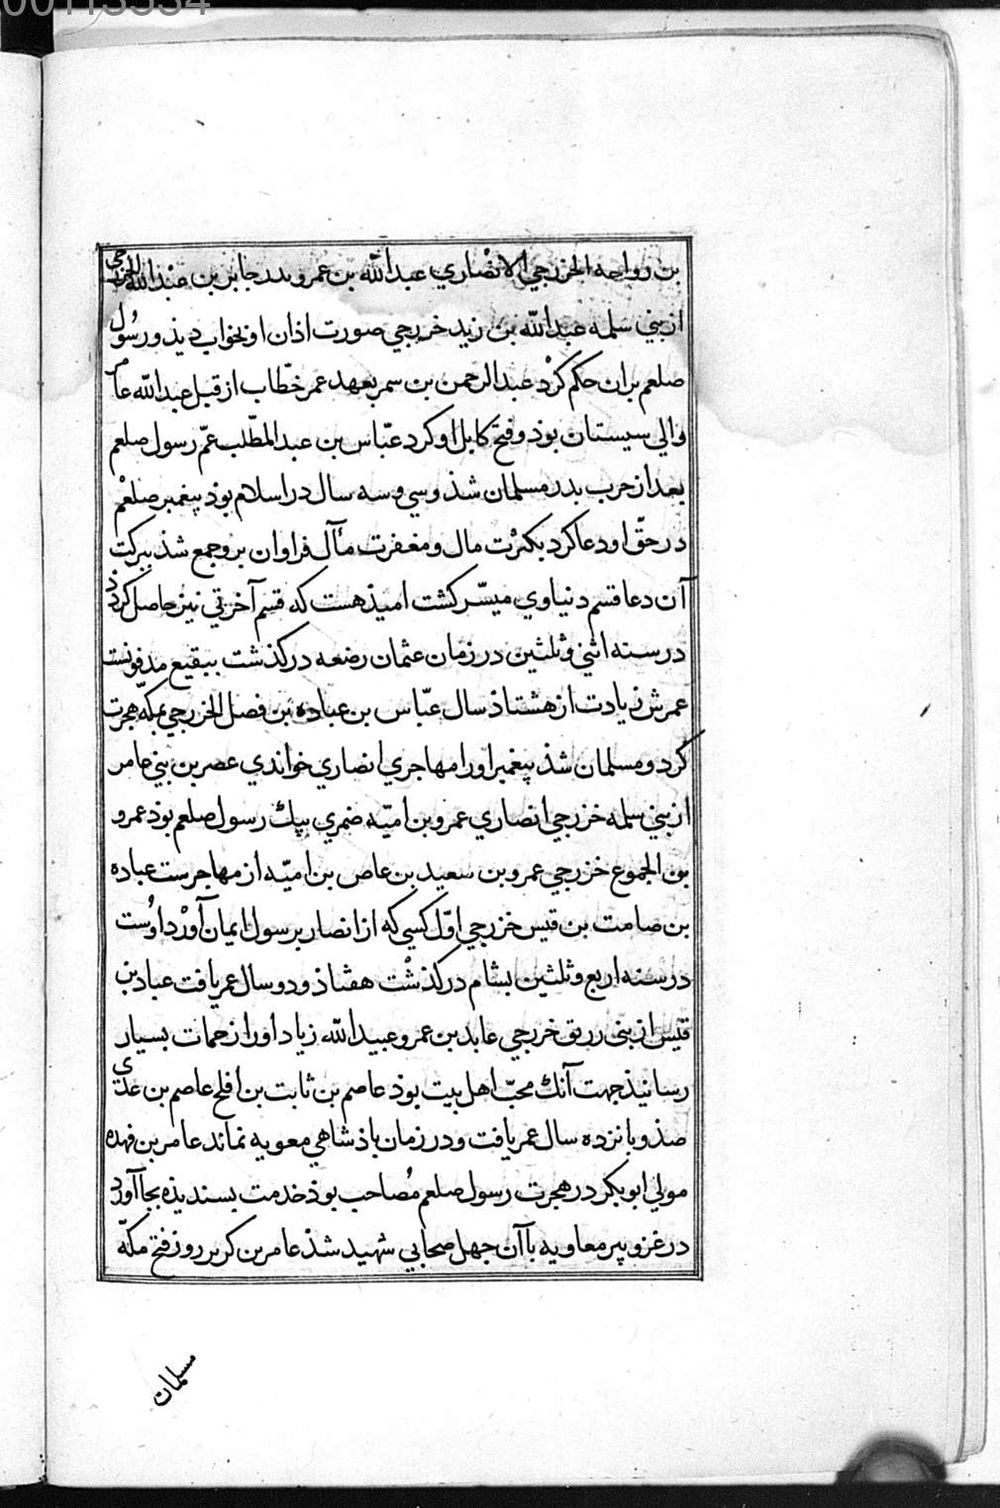 00113534
بن رواحه الخزرجي الانصاري عبدالله بن عمرو بدر جابر بن عبدالله الخزرجي
از بني سلمه عبدالله بن زيد خزرجي صورت اذان او بخواب ديذ و رسول
صلعم بران حكم كرد عبدالرحمن بن سمر بعهد عمر خطاب از قبل عبدالله عامر
والي سيستان بوذ و فتح كابل او كرد عبّاس بن عبد المطّلب عمّ رسول صلعم
بعد از حرب بدر مسلمان شذ و سي و سه سال در اسلام بوذ پيغمبر صلعم
در حقّ او دعا كرد بكثرت مال و مغفرت مآل فراوان برو جمع شذ ببركت
آن دعا قسم دنياوي ميسّر كشت اميذ هست كه قسم آخرتي نيز حاصل كردذ
در سنه اثني و ثلثين در زمان عثمان رضعه در كذشت ببقيع مدفونست
عمرش زيادت از هشتاذ سال عبّاس بن عباده بن فصل الخزرجي بمكّه هجرت
كرد و مسلمان شذ پيغمبر اورا مهاجري انصاري خواندي عصر بن بني عامر
از بني سلمه خزرجي انصاري عمرو بن اميّه ضمري پيك رسول صلعم بوذ عمرو
بن الجموع خزرجي عمرو بن سعيد بن عاص بن اميّه از مهاجرست عباده
بن صامت بن قيس خزرجي اوّل كسي كه از انصار برسول ايمان آورد اوست
در سنه اربع و ثلثين بشام در كذشت هفتاذ و دو سال عمر يافت عباد بن
قيس از بني رريق خزرجي عابد بن عمرو عبيدالله زياد اورا زحمات بسيار
رسانيذ جهت آنك محبّ اهل بيت بوذ عاصم بن ثابت بن افلح عاصم بن عدي
صذ و پانزده سال عمر يافت و در زمان پاذشاهي معويه نماند عامر بن فهده
مولي ابو بكر در هجرت رسول صلعم مُصاحب بوذ خدمت پسنديذه بجا آورد
در غزو پير معاويه با آن جهل صحابي شهيد شذ عامر بن كريز روز فتح مكّه
مسلمان